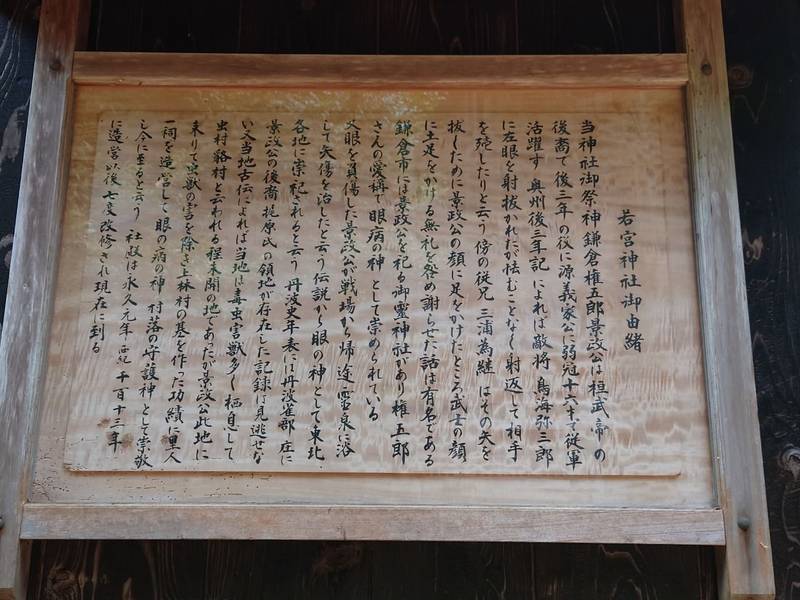 若宮神社御由緒
当神社御祭神鎌倉権五郎景政公は桓武帝の
後裔で後三年の役に源義家公に弱冠十六才で従軍
活躍す 奥州後三年記によれば敵将鳥海弥三郎
に左眼を射抜かれたが怯むことなく射返して相手
を殪したりと云う 傍の従兄 三浦為継はその矢を
抜くために景政公の顔に足をかけたところ武士の顔
に土足をかける無礼を咎め謝らせた話は有名である
鎌倉市には景政公を祀る御靈神社があり権五郎
さんの愛称で眼病の神として崇められている
又眼を負傷した景政公が戦場から帰途霊泉に浴
して矢傷を治したと云う伝説から眼の神として東北
各地に崇祀されると云う 丹波史年表には丹波雀部庄に
景政公の後裔梶原氏の領地が存在した記録は見逃せな
い又当地古伝によれば当地は毒虫害獣多く栖息して
虫村 貉村と云われる程未開の地であったが景政公此地に
来りて虫獣の害を除き上林村の基を作った功績に里人
一祠を造営して眼の病の神 村落の守護神として崇敬
し今に至ると云う 社殿は永久元年西紀千百十三年
に造営以後七度改修され現在に到る